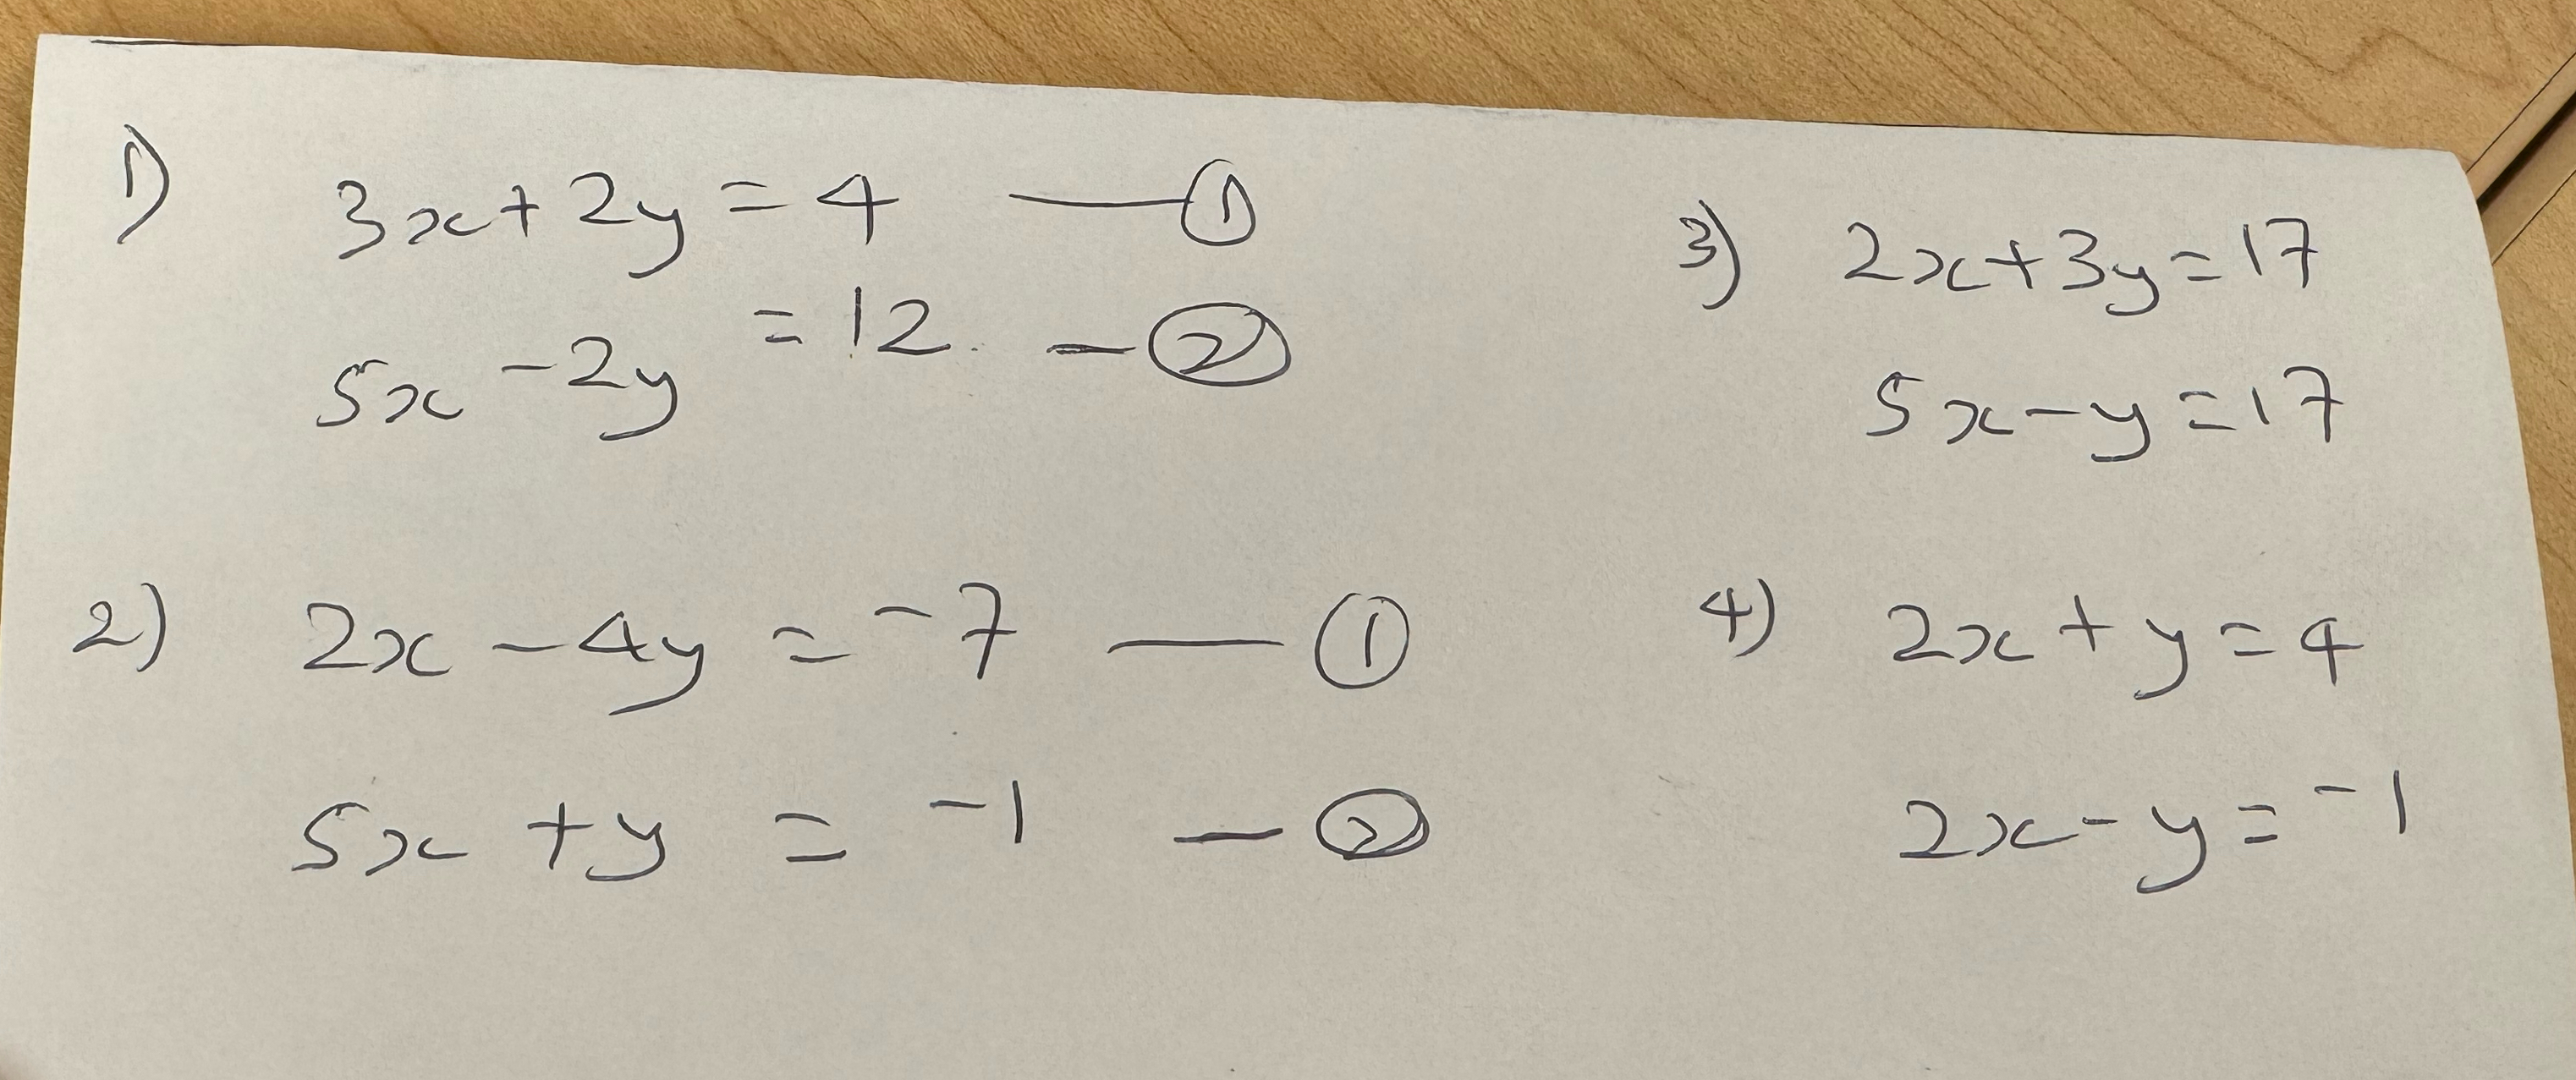 1) 3x + 2y = 4 — ①
5x - 2y = 12. - ②
2) 2x - 4y = -7 — ①
5x + y = -1 - ②
3) 2x + 3y = 17
5x - y = 17
4) 2x + y = 4
2x - y = -1